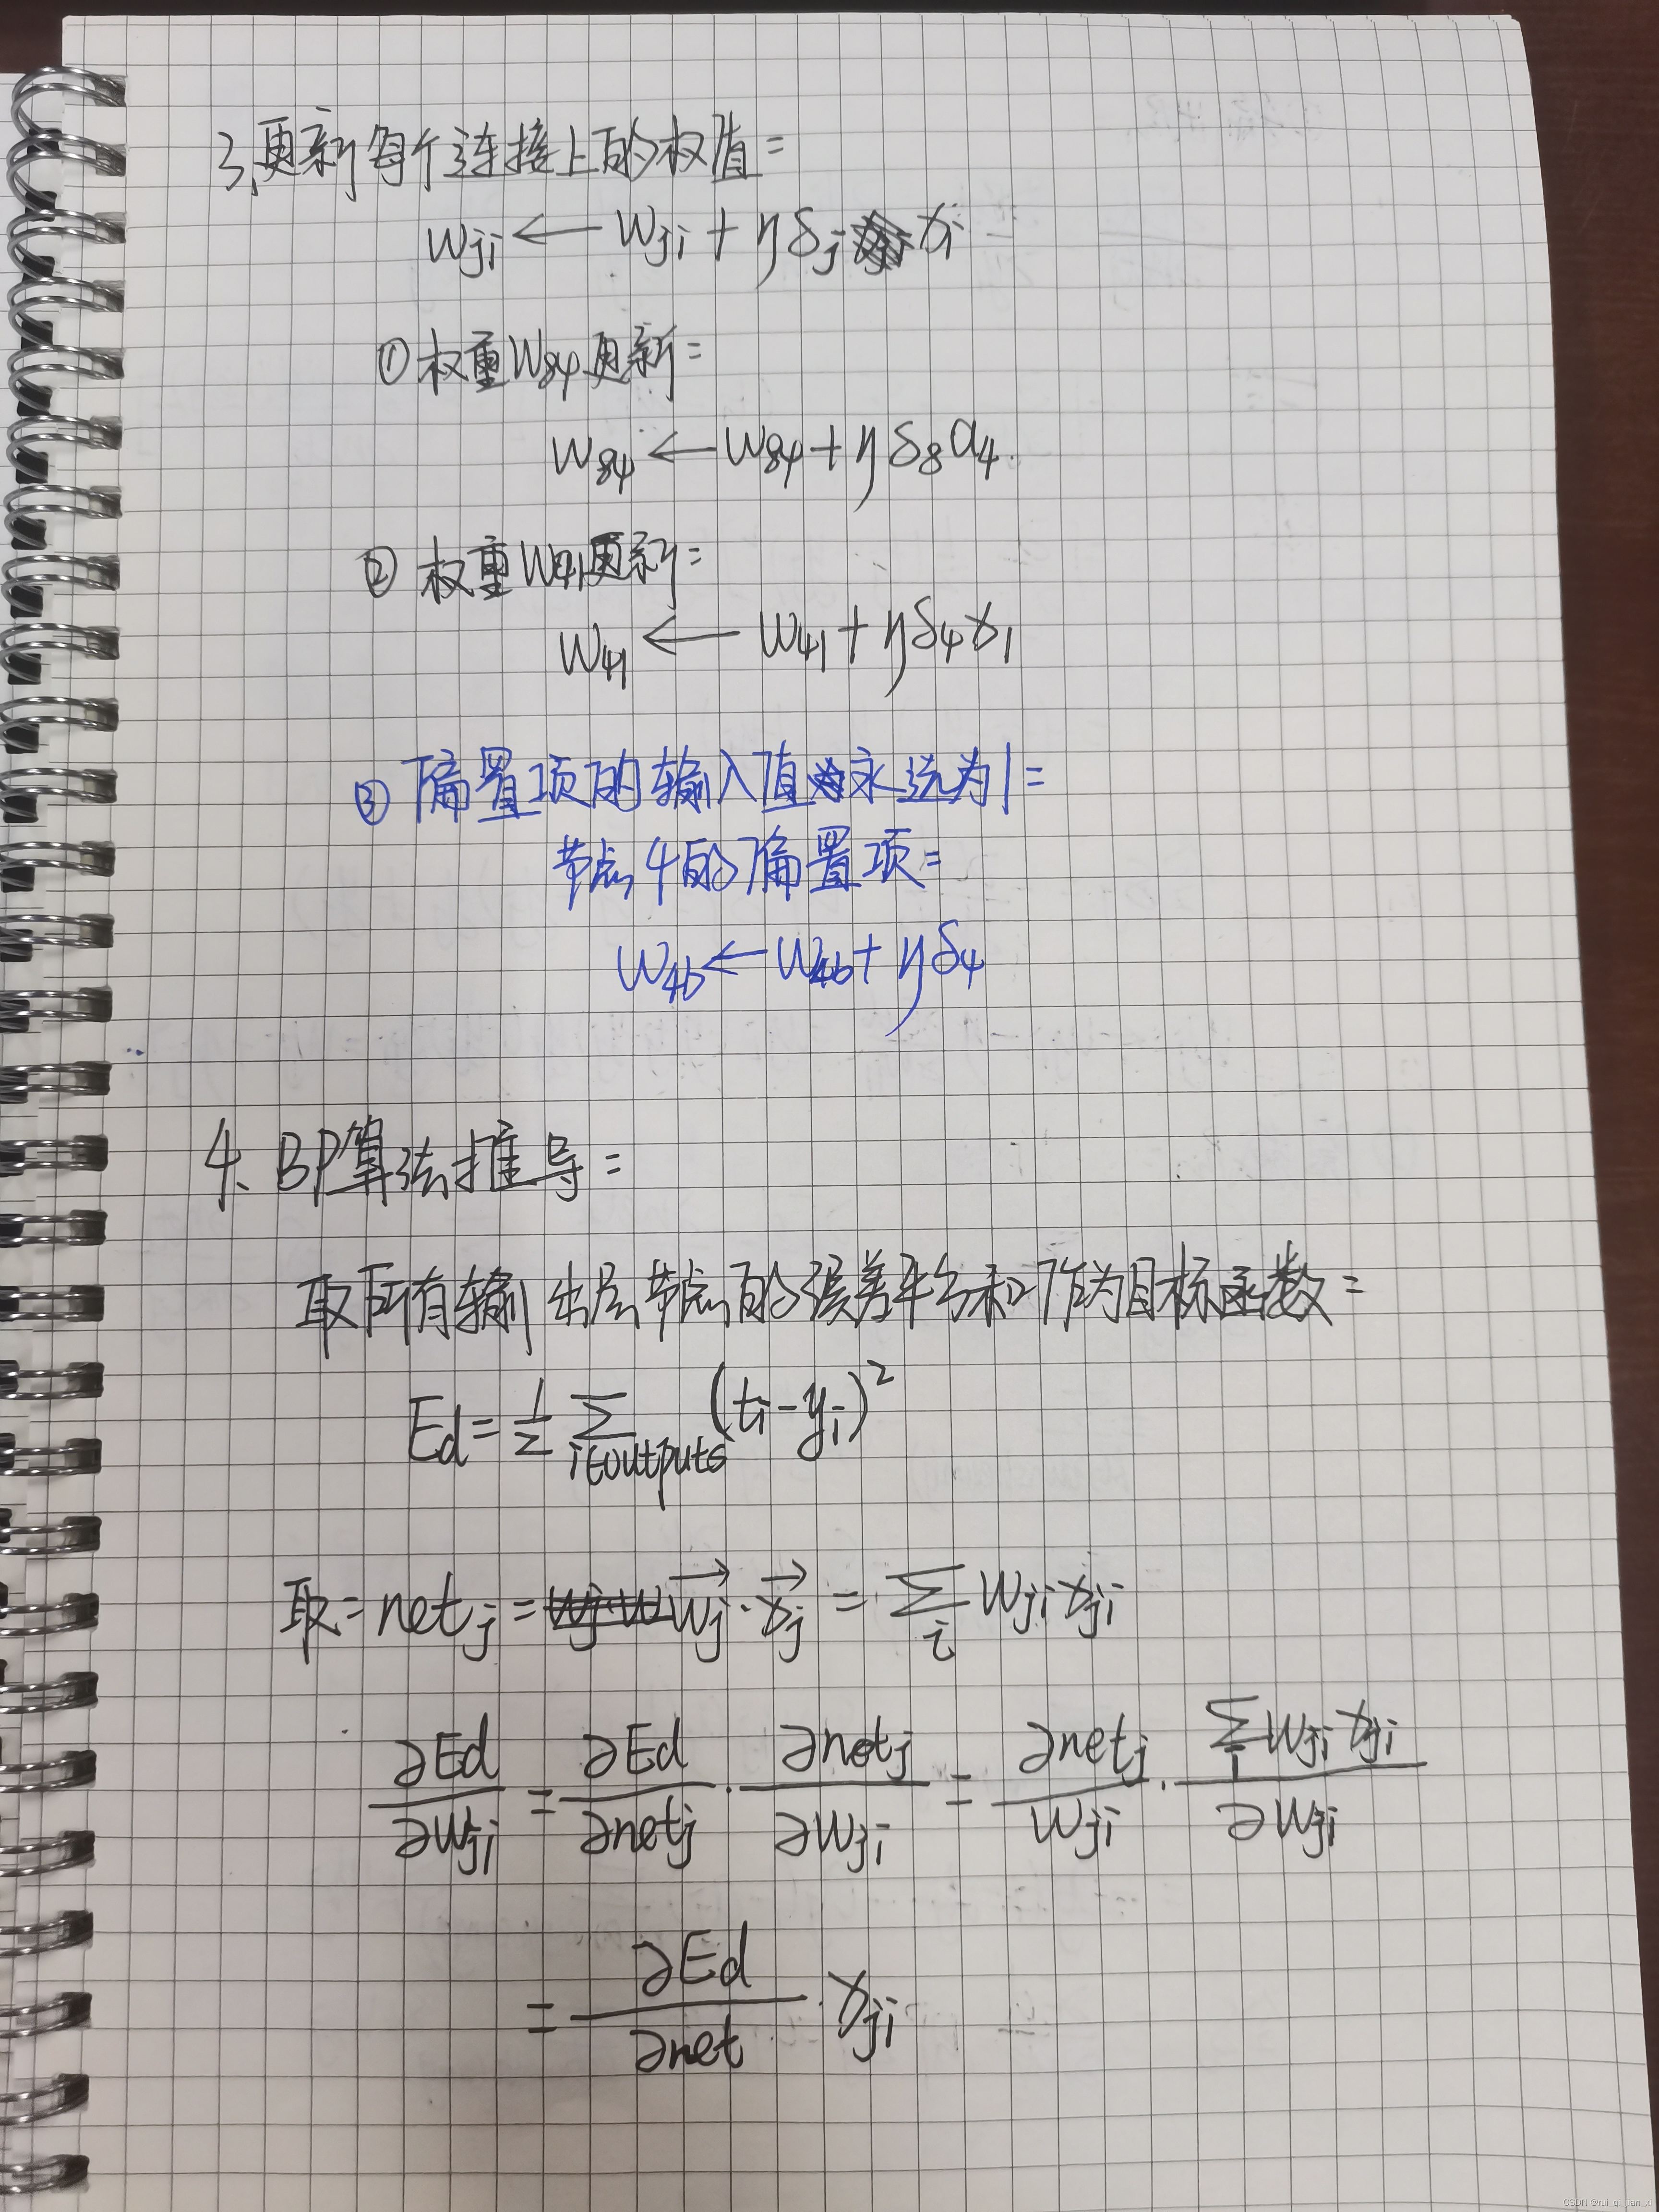 3、更新每个连接上的权值:
wji ← wji + ηδj xi
① 权重W84更新:
w84 ← w84 + ηδ8a4.
② 权重W41更新:
w41 ← w41 + ηδ4x1
③ 偏置项的输入值永远为1:
节点4的偏置项:
w4b ← w4b + ηδ4
4、BP算法推导:
取所有输出层节点的误差平方和作为目标函数:
Ed = 1/2 Σ i∈outputs (ti - yi)²
取: netj = →wj · →xj = Σi wji xji
∂Ed/∂wji = ∂Ed/∂netj · ∂netj/∂wji = ∂netj/wji · Σi wji xji/∂wji
= ∂Ed/∂net · xji
CSDN @rui_qi_jian_xi